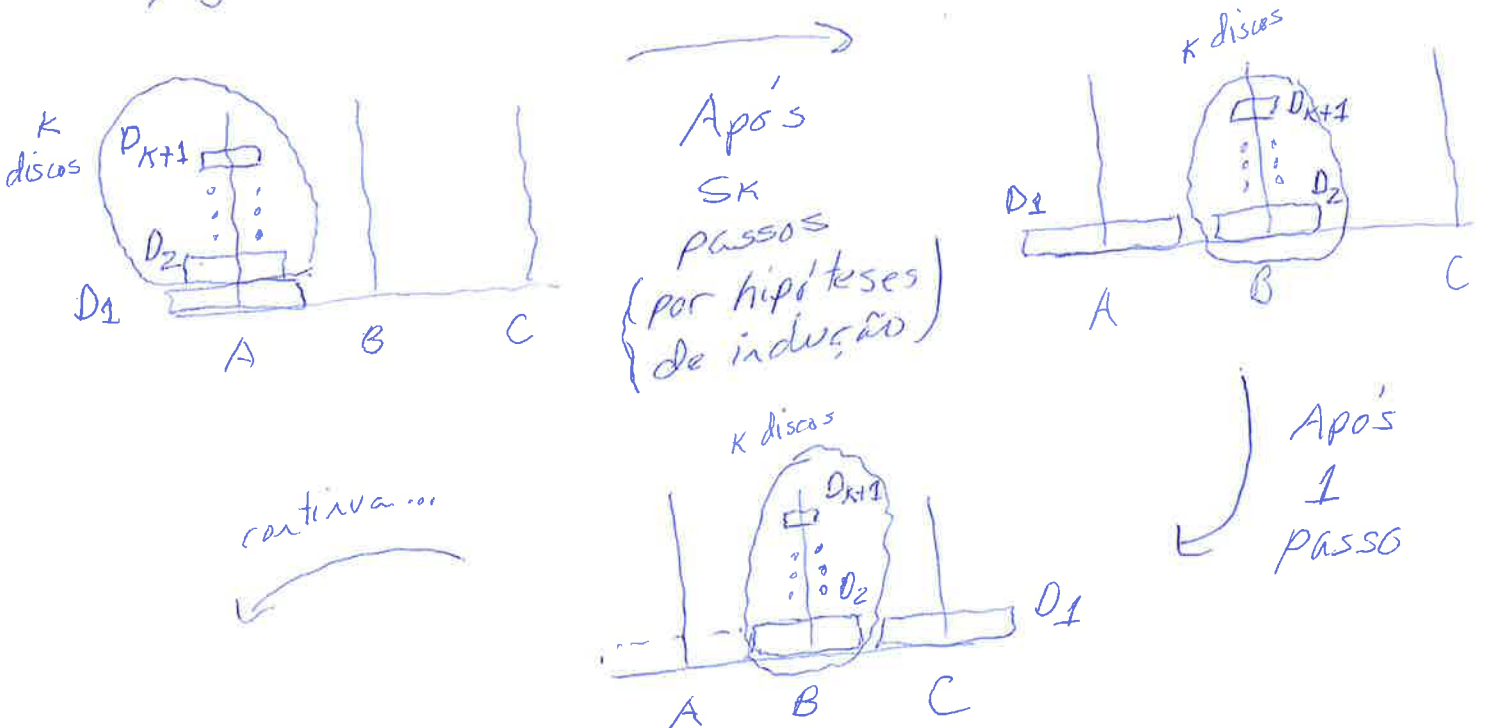 K
discos
DK+1
D2
D1
A
B
C
Após
SK
passos
(por hipóteses
de indução)
K discos
DK+1
D1
D2
A
B
C
Após
1
passo
K discos
DK+1
D2
D1
A
B
C
continua...